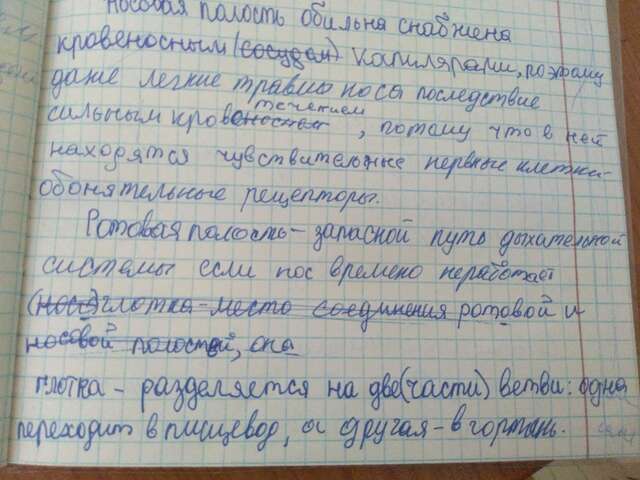 Носовая полость обильна снабжена
кровеносным (сосудам) капилярами, поэтому
даже легкие травмы носа последствие
течением
сильным кровеносным, потому что в ней
находятся чувствительные нервные клетки-
обонятельные рецепторы.
Ротовая полость - запасной путь дыхательной
системы если нос времено неработает
(носо) глотка - место соединения ротовой и
носовой полостей, она
глотка - разделяется на две (части) ветви: одна
переходит в пищевод, а другая - в гортань.